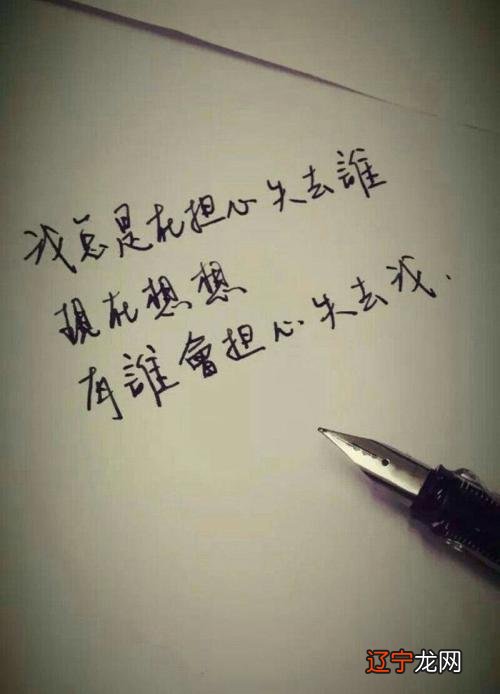 我总是在担心失去誰
現在想想
有誰會担心失去我.
辽宁龙网